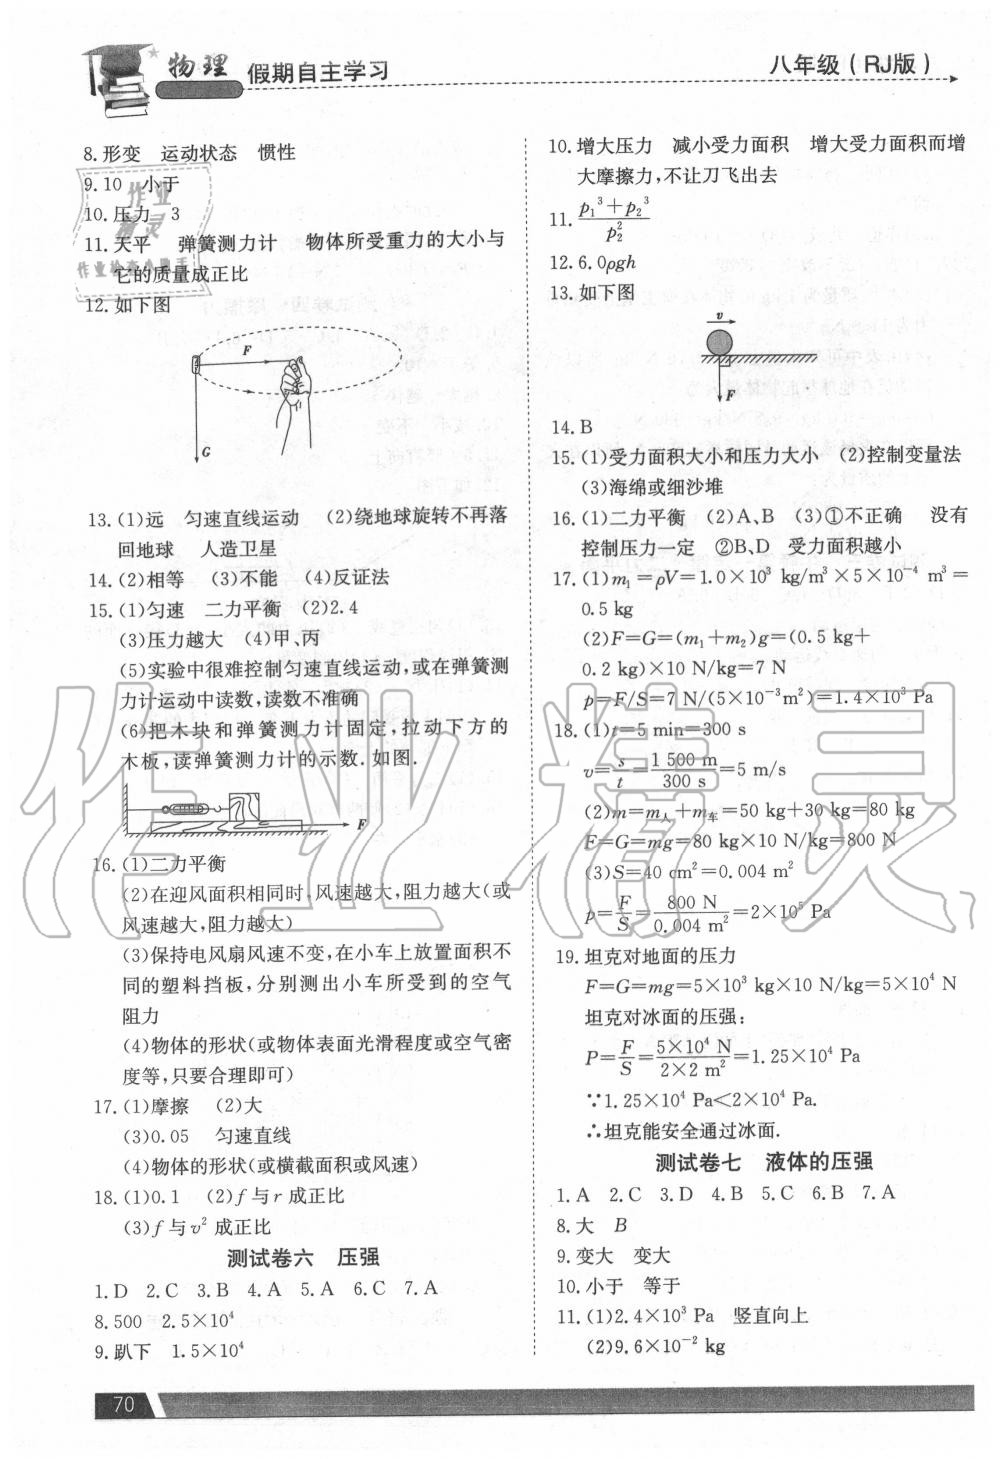 物理 假期自主学习
八年级(RJ版)
8.形变 运动状态 惯性
9.10 小于
10.压力 3
11.天平 弹簧测力计 物体所受重力的大小与
它的质量成正比
12.如下图
F
G
13.(1)远 匀速直线运动 (2)绕地球旋转不再落
回地球 人造卫星
14.(2)相等 (3)不能 (4)反证法
15.(1)匀速 二力平衡 (2)2.4
(3)压力越大 (4)甲、丙
(5)实验中很难控制匀速直线运动,或在弹簧测
力计运动中读数,读数不准确
(6)把木块和弹簧测力计固定,拉动下方的
木板,读弹簧测力计的示数.如图.
F
16.(1)二力平衡
(2)在迎风面积相同时,风速越大,阻力越大(或
风速越大,阻力越大)
(3)保持电风扇风速不变,在小车上放置面积不
同的塑料挡板,分别测出小车所受到的空气
阻力
(4)物体的形状(或物体表面光滑程度或空气密
度等,只要合理即可)
17.(1)摩擦 (2)大
(3)0.05 匀速直线
(4)物体的形状(或横截面积或风速)
18.(1)0.1 (2)f与r成正比
(3)f与v² 成正比
测试卷六 压强
1.D 2.C 3.B 4.A 5.A 6.C 7.A
8.500 2.5×10⁴
9.趴下 1.5×10⁴
10.增大压力 减小受力面积 增大受力面积而增
大摩擦力,不让刀飞出去
11. p₁³+p₂³ / p₂²
12.6.0ρgh
13.如下图
v
F
14.B
15.(1)受力面积大小和压力大小 (2)控制变量法
(3)海绵或细沙堆
16.(1)二力平衡 (2)A、B (3)①不正确 没有
控制压力一定 ②B、D 受力面积越小
17.(1)m₁=ρV=1.0×10³ kg/m³×5×10⁻⁴ m³=
0.5 kg
(2)F=G=(m₁+m₂)g=(0.5 kg+
0.2 kg)×10 N/kg=7 N
p=F/S=7 N/(5×10⁻³m²)=1.4×10³ Pa
18.(1)t=5 min=300 s
v=s/t=1 500 m/300 s=5 m/s
(2)m=m人+m车=50 kg+30 kg=80 kg
F=G=mg=80 kg×10 N/kg=800 N
(3)S=40 cm²=0.004 m²
p=F/S=800 N/0.004 m²=2×10⁵ Pa
19.坦克对地面的压力
F=G=mg=5×10³ kg×10 N/kg=5×10⁴ N
坦克对冰面的压强:
P=F/S=5×10⁴ N/2×2 m²=1.25×10⁴ Pa
∵1.25×10⁴ Pa<2×10⁴ Pa.
∴坦克能安全通过冰面.
测试卷七 液体的压强
1.A 2.C 3.D 4.B 5.C 6.B 7.A
8.大 B
9.变大 变大
10.小于 等于
11.(1)2.4×10³ Pa 竖直向上
(2)9.6×10⁻² kg
70
作业精灵
作业
精灵
作业检查小助手